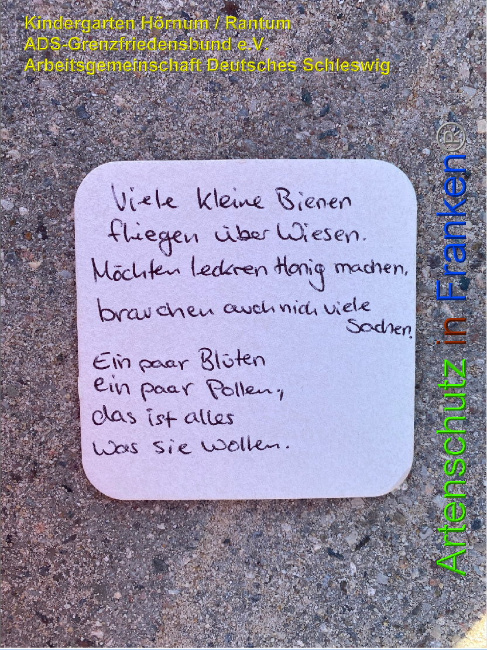 Kindergarten Hörnum / Rantum
ADS-Grenzfriedensbund e.V.
Arbeitsgemeinschaft Deutsches Schleswig
Viele kleine Bienen
fliegen über Wiesen.
Möchten leckren Honig machen,
brauchen auch nich viele
Sachen.
Ein paar Blüten
ein paar Pollen,
das ist alles
was sie wollen.
Artenschutz in Franken®